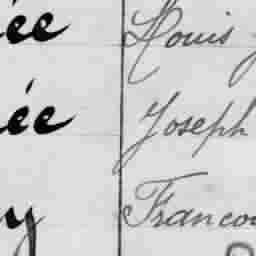 ée Louis
ée Joseph
y Francou